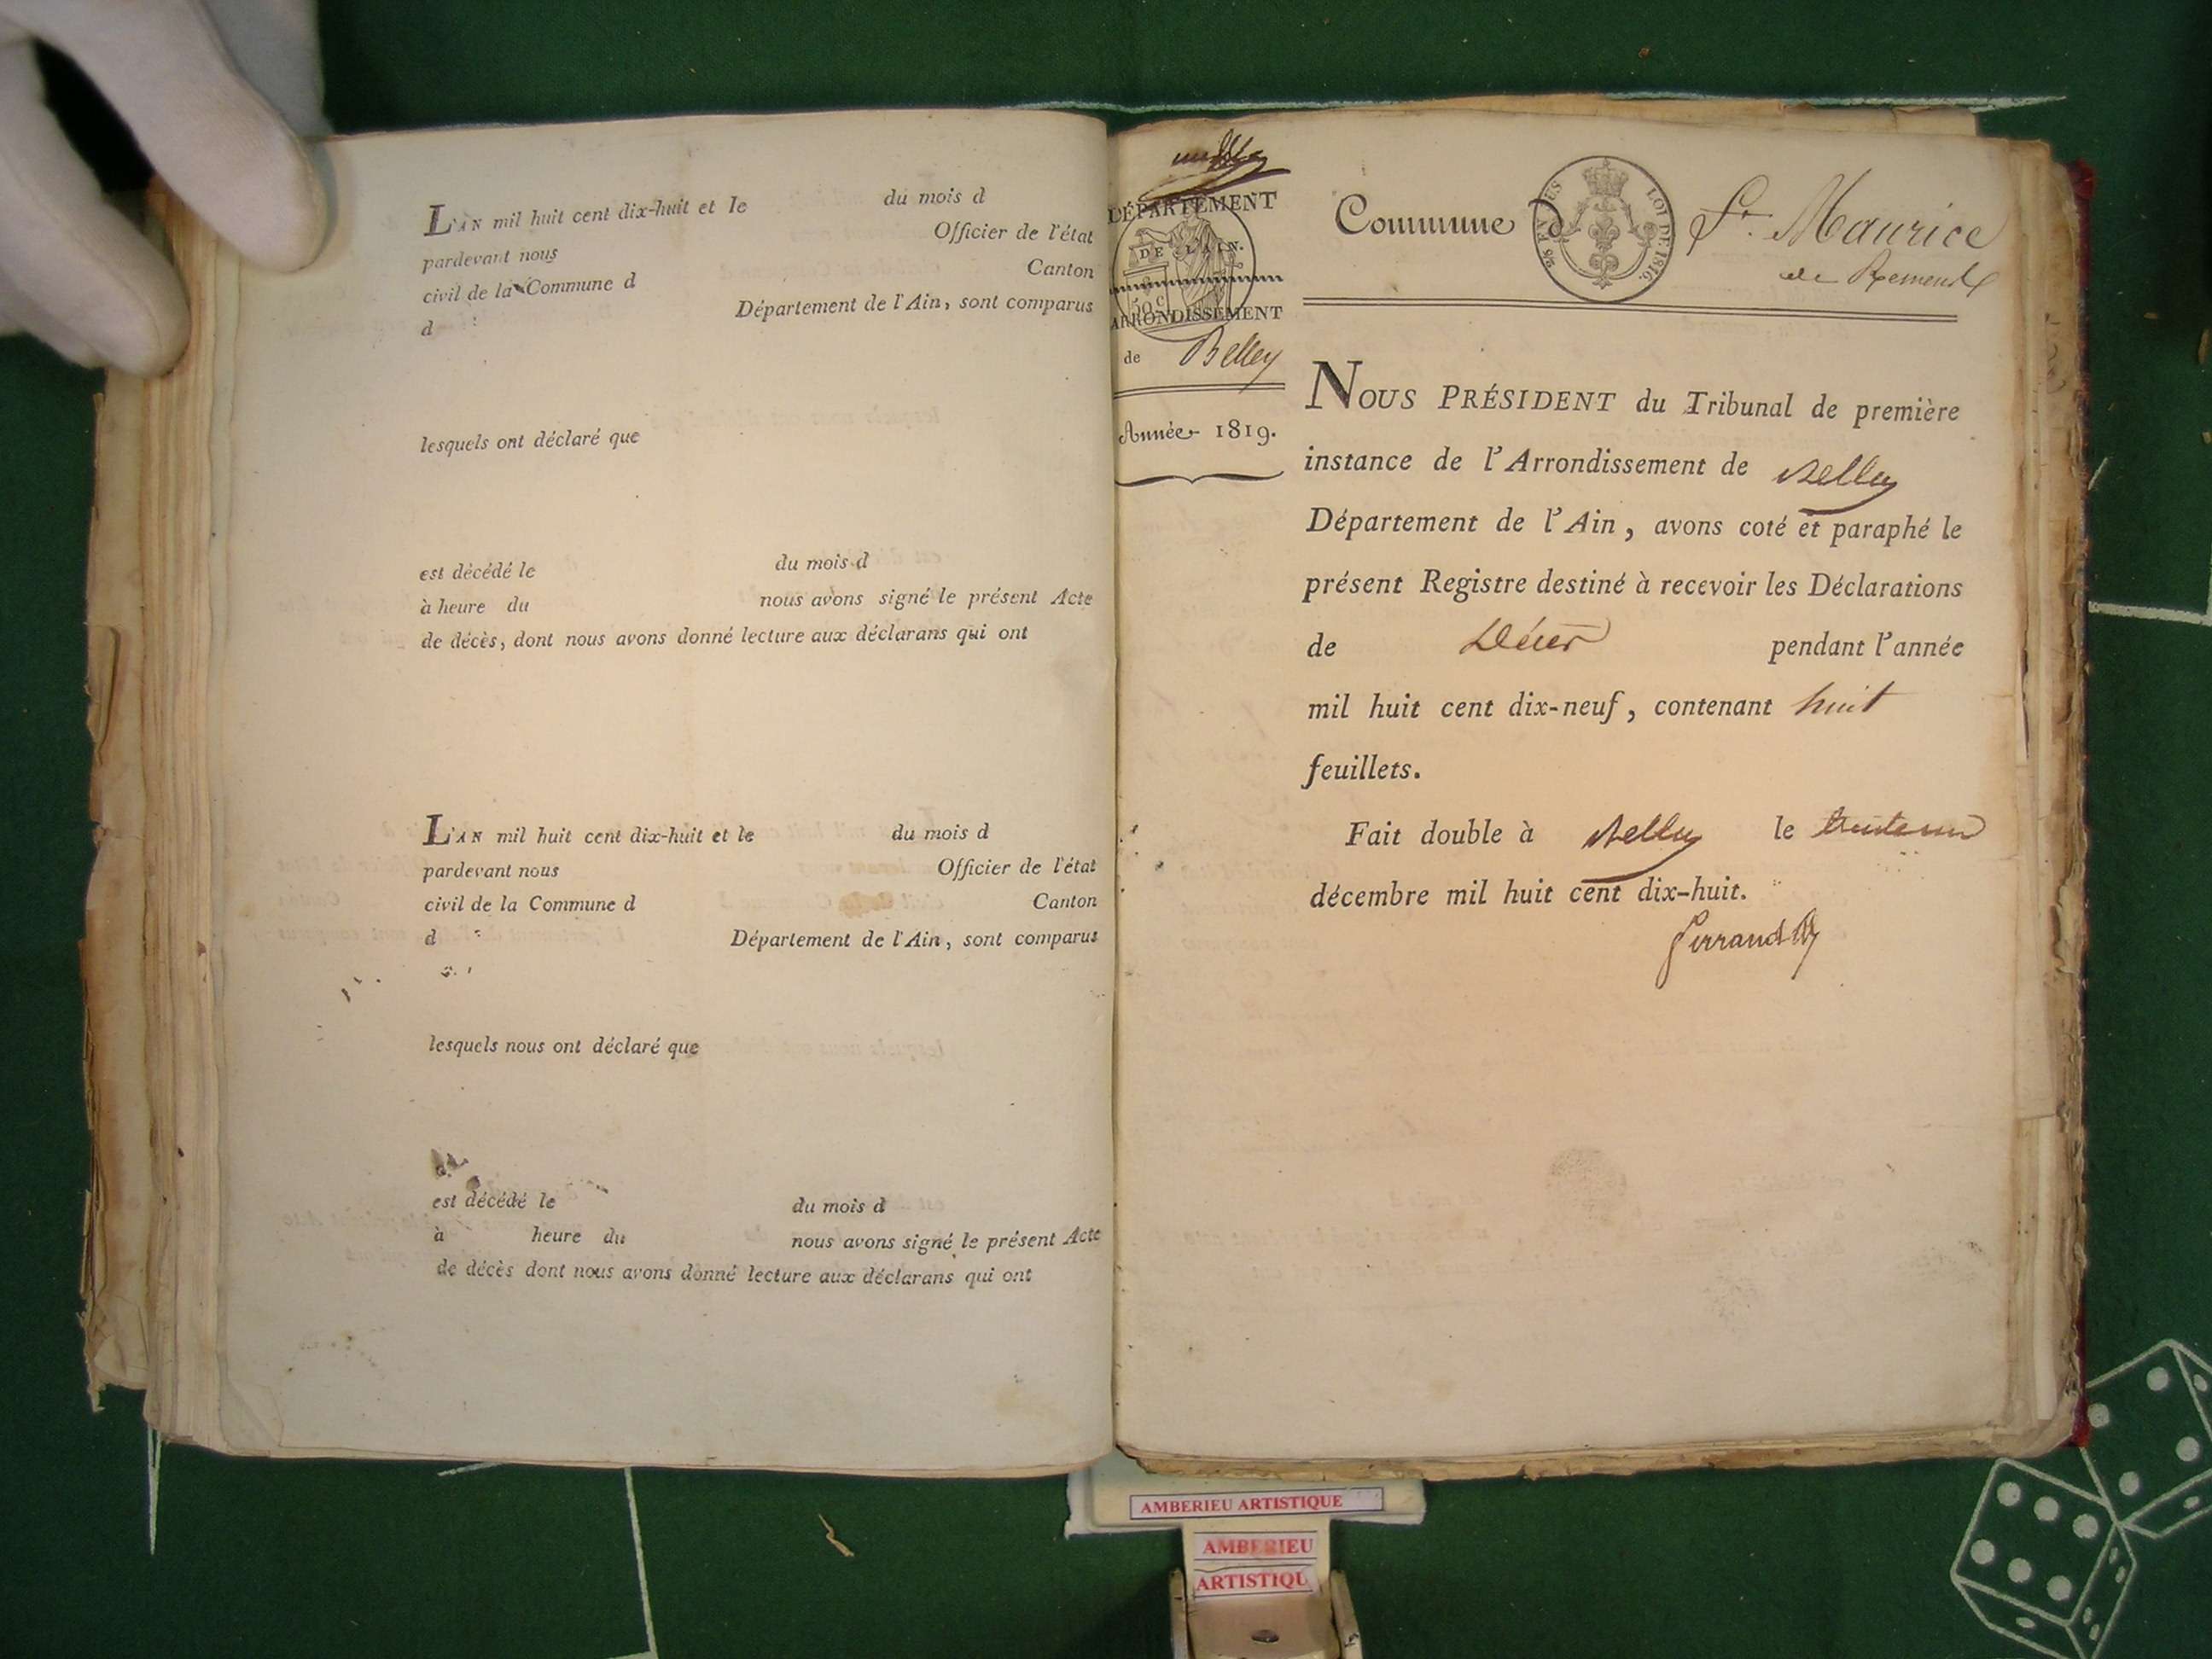 L'AN mil huit cent dix-huit et le du mois d
pardevant nous Officier de l'état
civil de la Commune d Canton
d Département de l'Ain, sont comparus
lesquels ont déclaré que
est décédé le du mois d
à heure du nous avons signé le présent Acte
de décès, dont nous avons donné lecture aux déclarans qui ont
L'AN mil huit cent dix-huit et le du mois d
pardevant nous Officier de l'état
civil de la Commune d Canton
d Département de l'Ain, sont comparus
lesquels nous ont déclaré que
est décédé le du mois d
à heure du nous avons signé le présent Acte
de décès dont nous avons donné lecture aux déclarans qui ont
DÉPARTEMENT
DE L'AIN.
50 c
ARRONDISSEMENT
de Belley
Année 1819.
Commune d St. Maurice
de Remens
LOI DE 1816.
NOUS PRÉSIDENT du Tribunal de première
instance de l'Arrondissement de Belley
Département de l'Ain, avons coté et paraphé le
présent Registre destiné à recevoir les Déclarations
de Décès pendant l'année
mil huit cent dix-neuf, contenant huit
feuillets.
Fait double à Belley le trente un
décembre mil huit cent dix-huit.
AMBERIEU ARTISTIQUE
AMBERIEU
ARTISTIQU